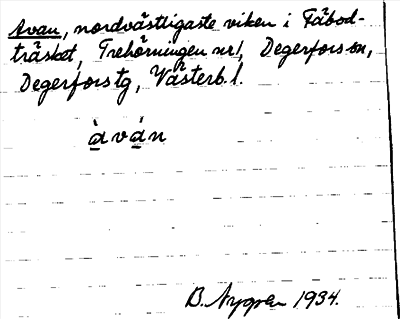 Avan, nordvästligaste viken i Fäbod-
träsket, Trehörningen nr 1, Degerfors sn,
Degerfors tg, Västerb. l.
àván
B. Nygren 1934.